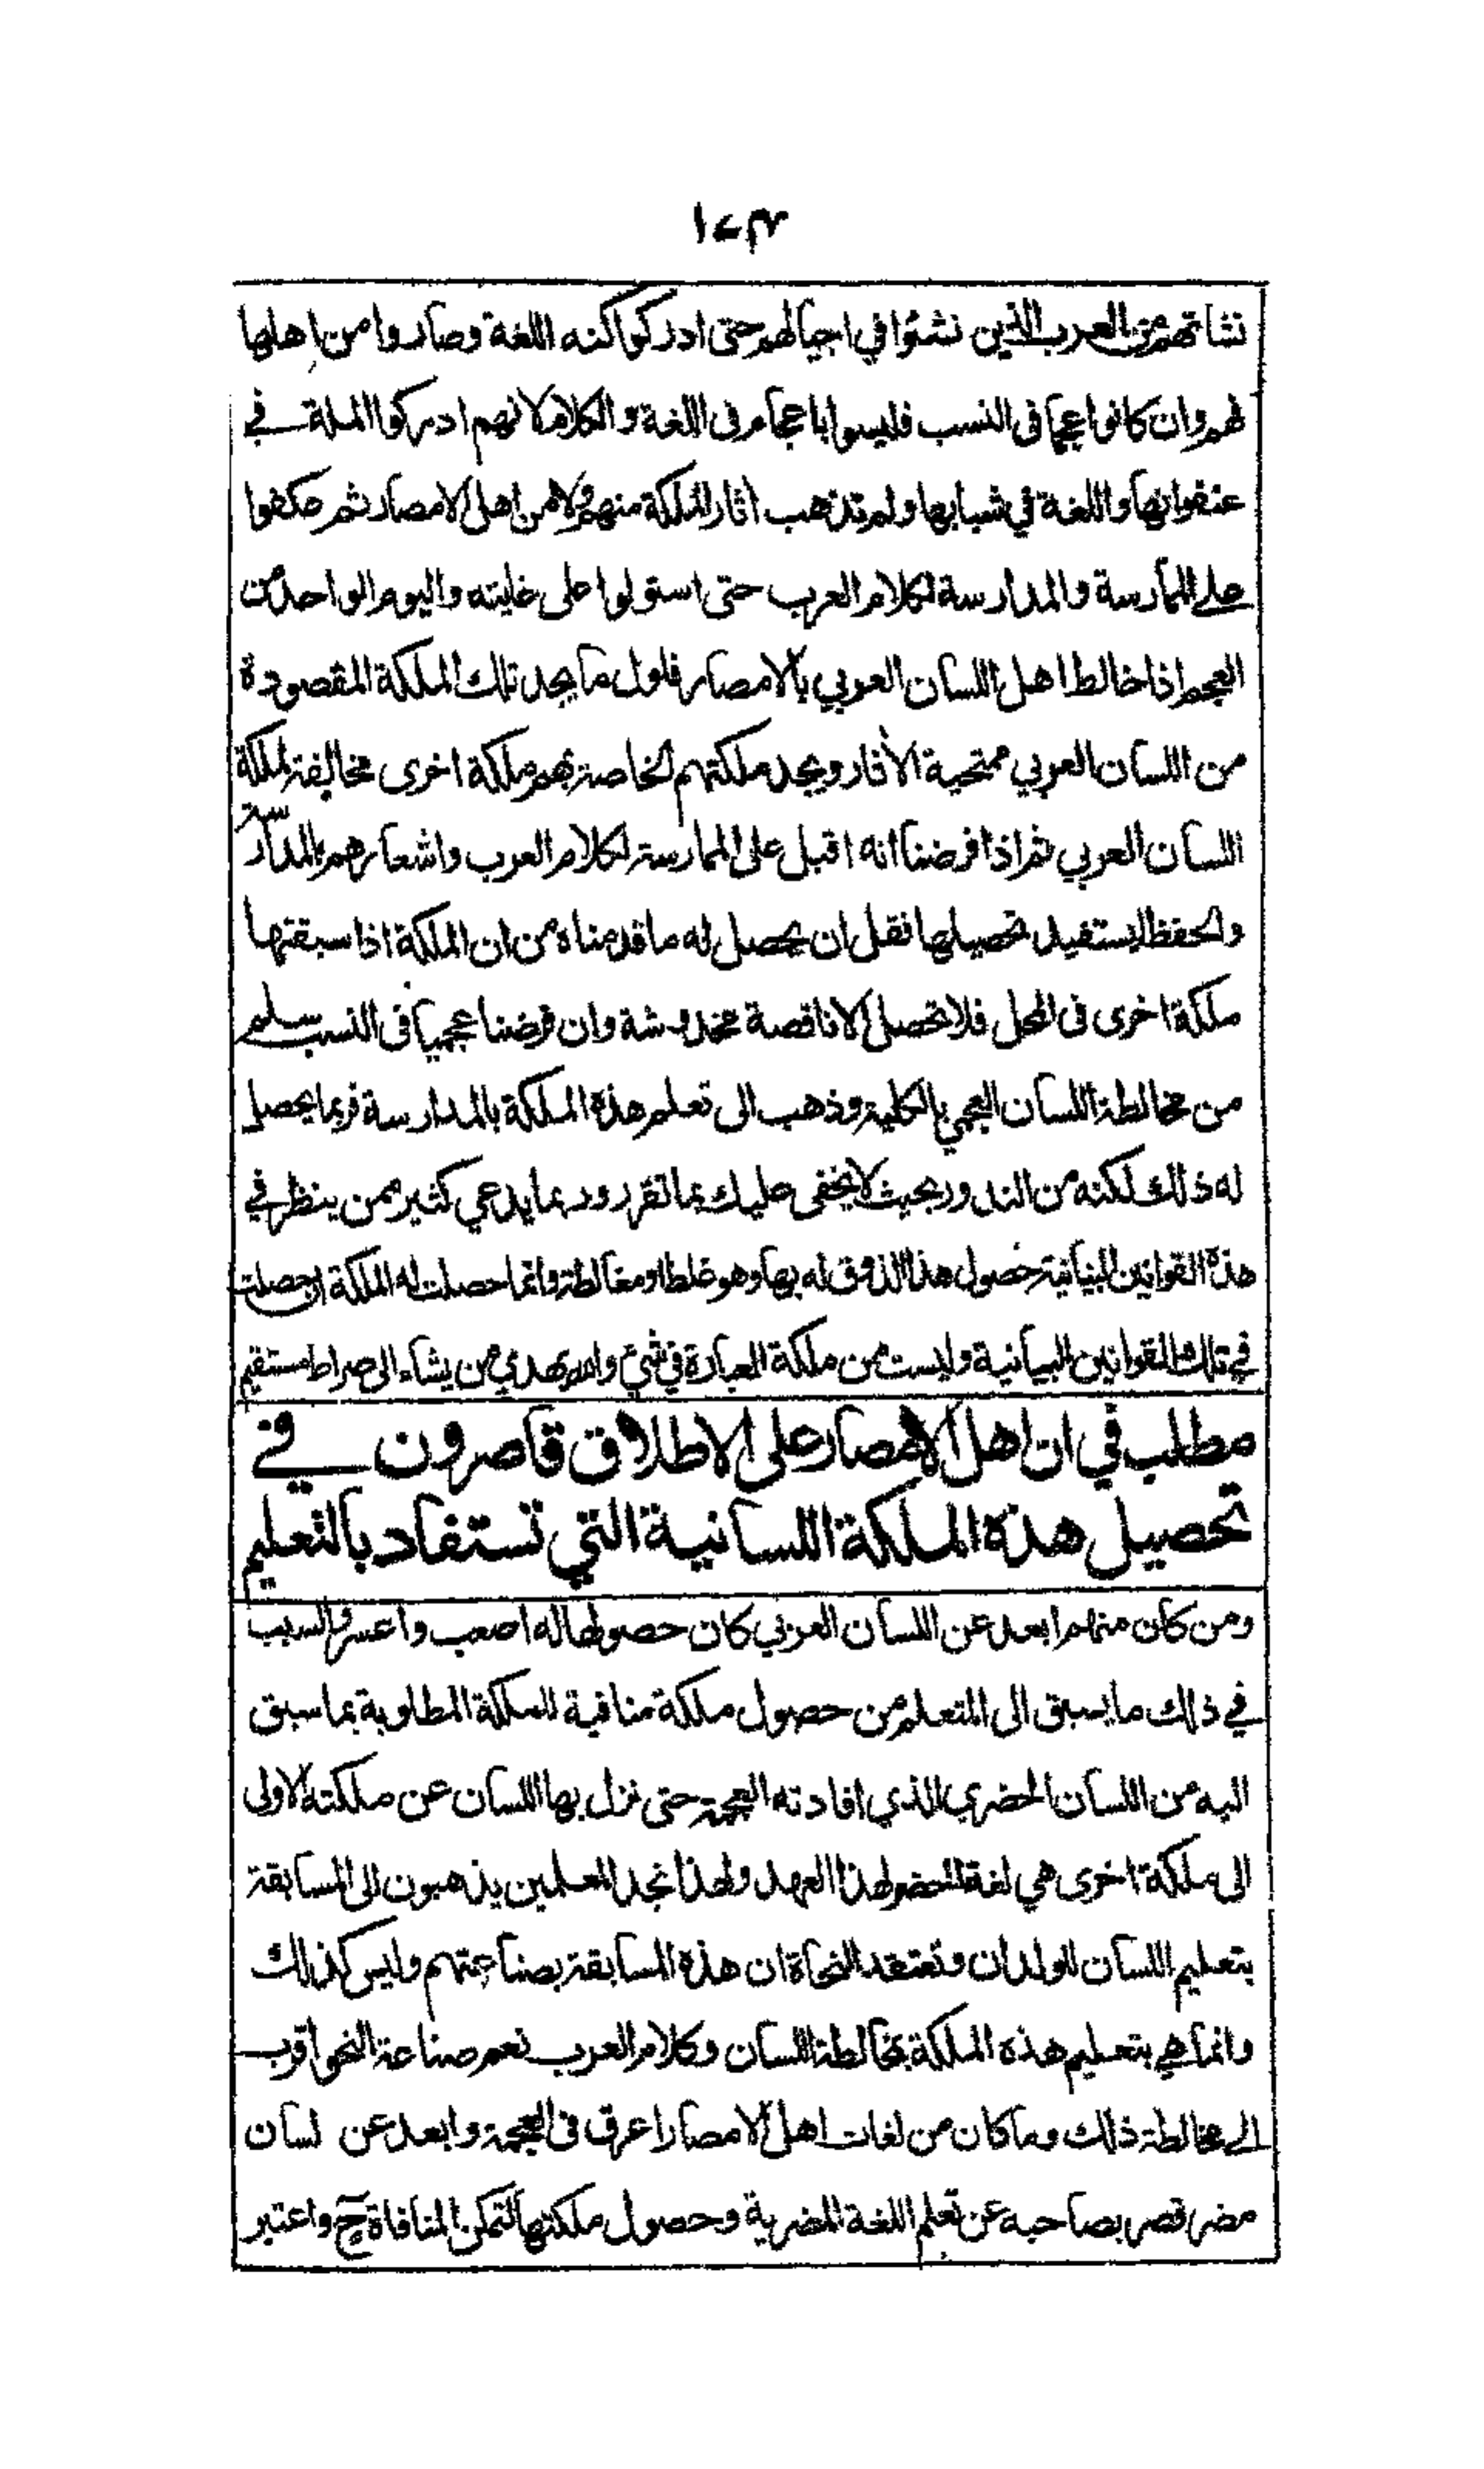 ١٧٣
نشاتهم من العرب الذين نشئوا في اجيالهم حتى ادركوا كنه اللغة وصاروا من اهلها
فهم وان كانوا عجما فى النسب فليسوا باعجام فى اللغة والكلام لانهم ادركوا الملة في
عنفوانها واللغة في شبابها ولم تذهب اثار الملكة منهم ولا من اهل الامصار ثم عكفوا
على الممارسة والمدارسة لكلام العرب حتى استولوا على غايته واليوم الواحد من
العجم اذا خالط اهل اللسان العربي بالامصار فاول ما يجد تلك الملكة المقصودة
من اللسان العربي ممتحية الأثار ويجد ملكتهم الخاصة بهم ملكة اخرى مخالفة لملكة
اللسان العربي ثم اذا فرضنا انه اقبل على الممارسة لكلام العرب واشعارهم بالمدارسة
والحفظ ليستفيد تحصيلها فقل ان يحصل له ما قدمناه من ان الملكة اذا سبقتها
ملكة اخرى فى المحل فلا تحصل الا ناقصة مخدوشة وان فرضنا عجميا فى النسب سلم
من مخالطة اللسان العجمي بالكلية وذهب الى تعلم هذه الملكة بالمدارسة فربما يحصل
له ذلك لكنه من الندور بحيث لا يخفى عليك بما تقرر وربما يدعي كثير ممن ينظر في
هذه القوانين البيانية حصول هذا الذوق له بها وهو غلط او مغالطة وانما حصلت له الملكة ان حصلت
في تلك القوانين البيانية وليست من ملكة العبارة في شيء والله يهدي من يشاء الى صراط مستقيم
مطلب في ان اهل الامصار على الاطلاق قاصرون في
تحصيل هذه الملكة اللسانية التي تستفاد بالتعليم
ومن كان منهم ابعد عن اللسان العربي كان حصولها له اصعب واعسر والسبب
في ذلك ما يسبق الى المتعلم من حصول ملكة منافية للملكة المطلوبة بما سبق
اليه من اللسان الحضري الذي افادته العجمة حتى نزل بها اللسان عن ملكته الاولى
الى ملكة اخرى هي لغة الحضر لهذا العهد ولهذا نجد المعلمين يذهبون الى المسابقة
بتعليم اللسان للولدان وتعتقد النحاة ان هذه المسابقة بصناعتهم وليس كذلك
وانما هي بتعليم هذه الملكة بمخالطة اللسان وكلام العرب نعم صناعة النحو اقرب
الى مخالطة ذلك وما كان من لغات اهل الامصار اعرق فى العجمة وابعد عن لسان
مضر قصر بصاحبه عن تعلم اللغة المضرية وحصول ملكتها لتمكن المنافاة ح واعتبر